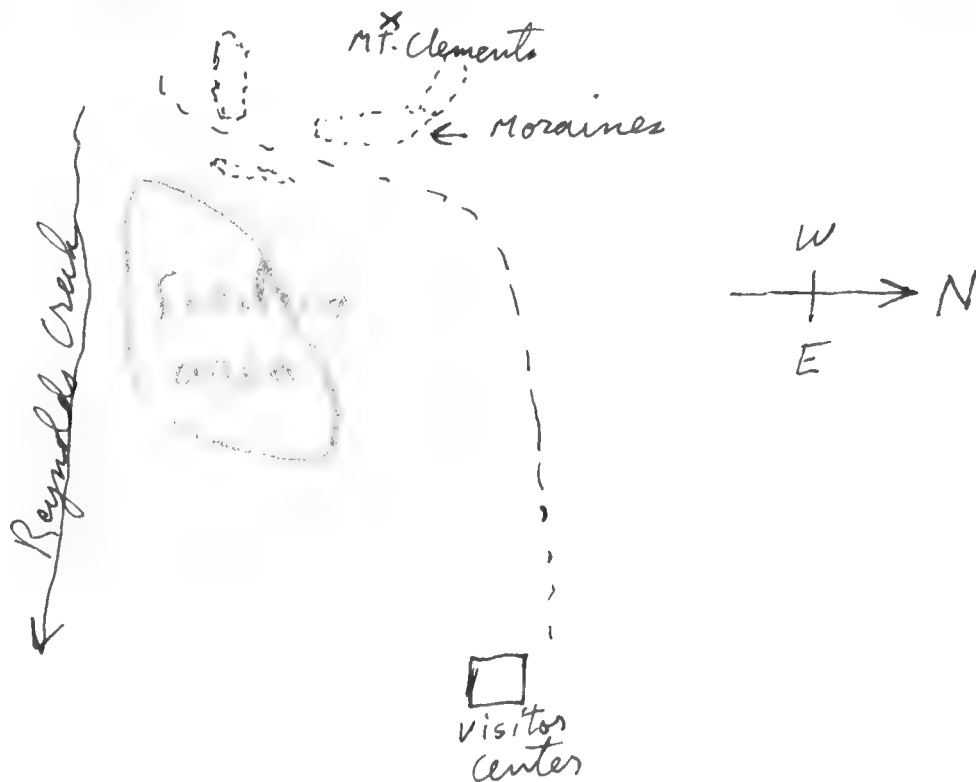 Mt. Clements
Moraines
Reynolds Creek
W
N
E
visitor
center